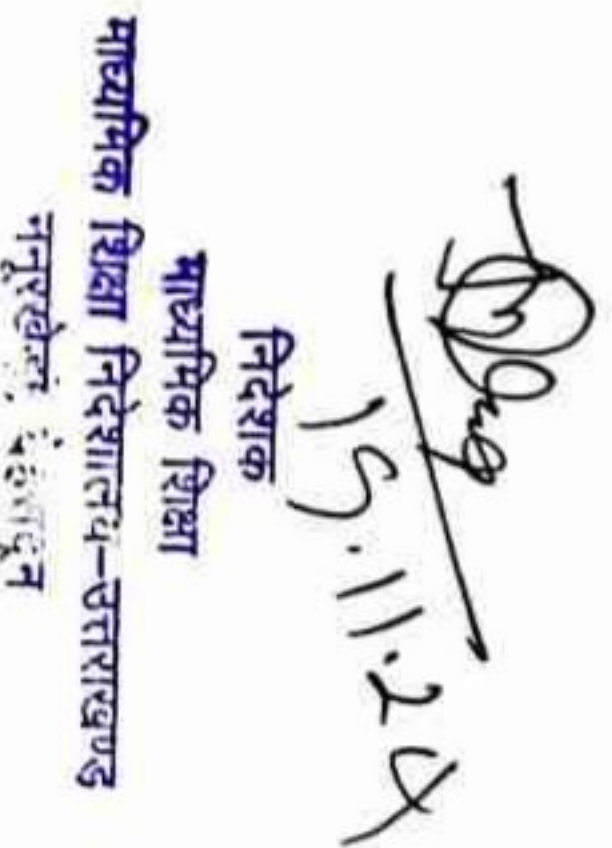 15.11.24
निदेशक
माध्यमिक शिक्षा
माध्यमिक शिक्षा निदेशालय-उत्तराखण्ड
ननूरखेड़ा, देहरादून